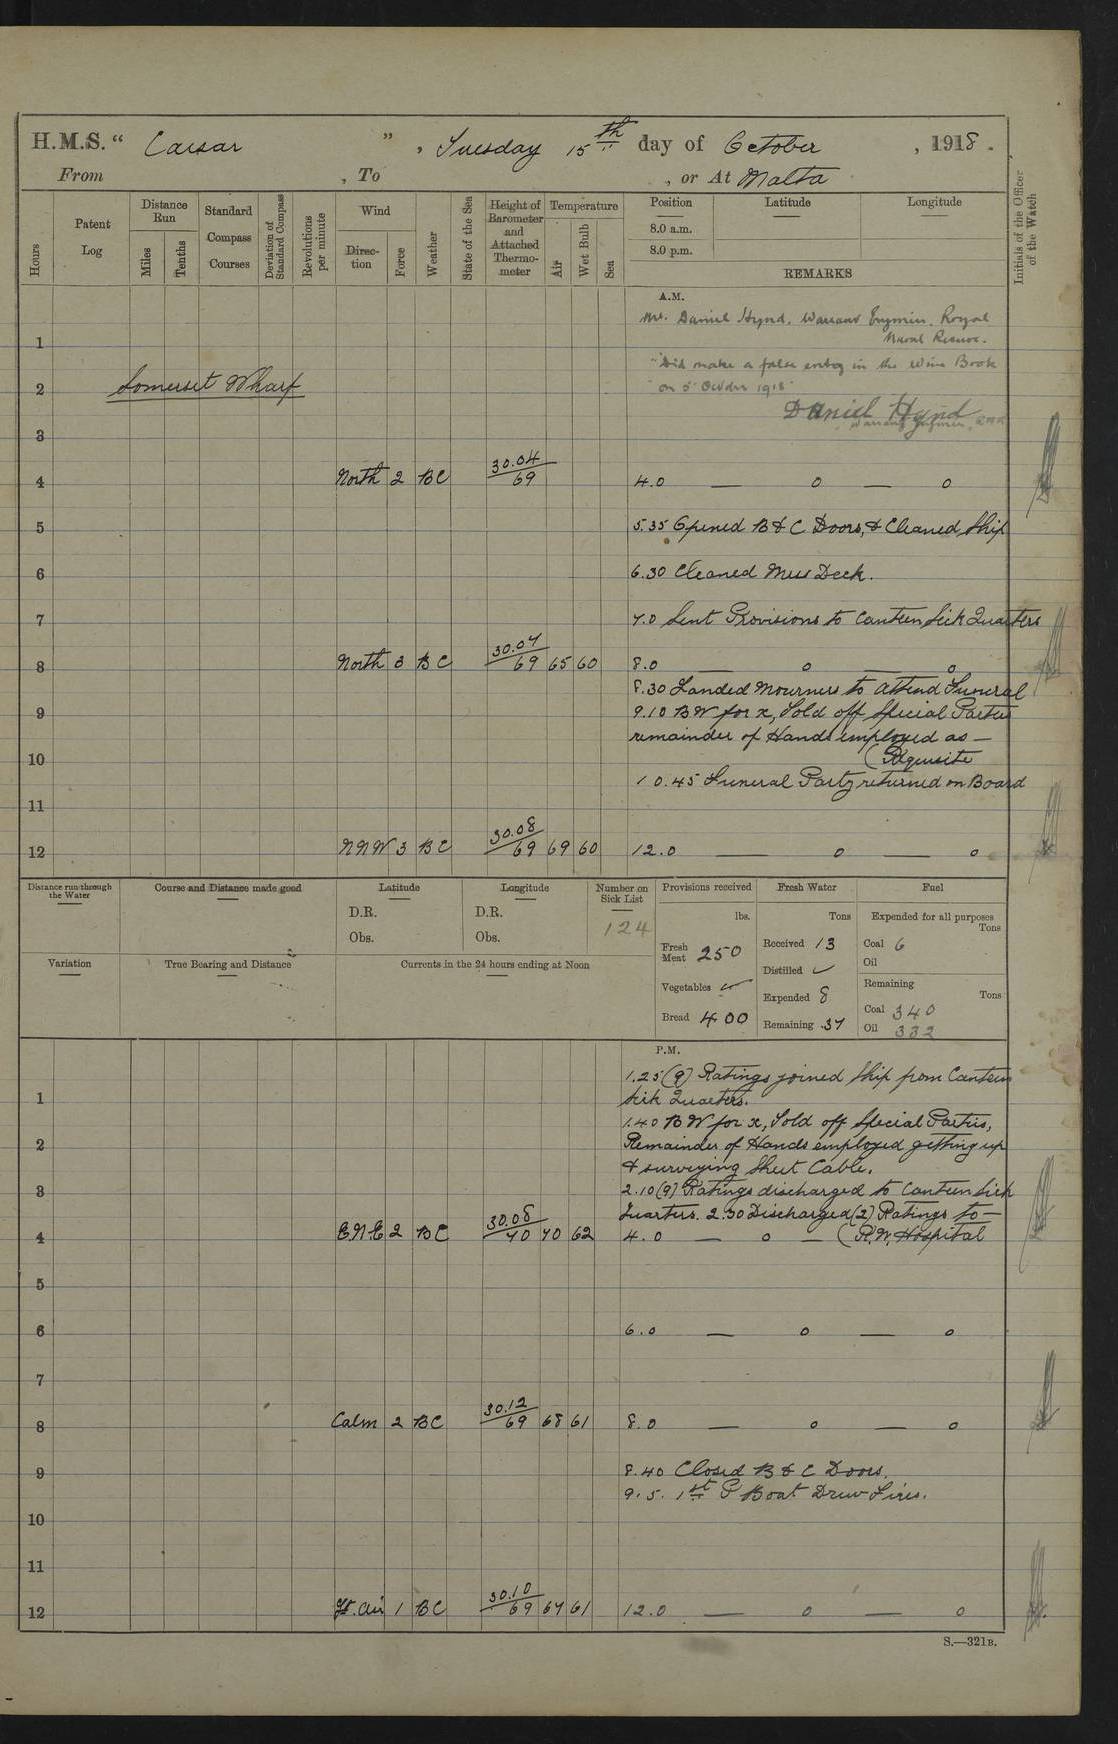 H.M.S. " Caesar ", Tuesday 15th day of October, 1918.
From , To , or At Malta
Hours
Patent Log
Distance Run
Miles
Tenths
Standard Compass Courses
Deviation of Standard Compass
Revolutions per minute
Wind
Direction
Force
Weather
State of the Sea
Height of Barometer and Attached Thermometer
Temperature
Air
Wet Bulb
Sea
Position
Latitude
Longitude
8.0 a.m.
8.0 p.m.
REMARKS
Initials of the Officer of the Watch
A.M.
Mr. Daniel Hynd, Warrant Engineer, Royal
Naval Reserve.
1
"Did make a false entry in the Wine Book
2 Somerset Wharf
on 5 October 1918"
Daniel Hynd
Warrant Engineer, RNR
3
4 North 2 BC 30.04/69 4.0 — 0 — 0
5 5.35 Opened B & C Doors, & Cleaned Ship
6 6.30 Cleaned Mess Deck.
7 7.0 Sent Provisions to Canteen Sick Quarters
8 North 3 BC 30.07/69 65 60 8.0 — 0 — 0
8.30 Landed Mourners to attend Funeral
9 9.10 BW for x, Told off Special Parties
remainder of Hands employed as —
10 (Requisite
10.45 Funeral Party returned on Board
11
12 NNW 3 BC 30.08/69 69 60 12.0 — 0 — 0
Distance run through the Water
Course and Distance made good
Latitude
D.R.
Obs.
Longitude
D.R.
Obs.
Number on Sick List
124
Provisions received
lbs.
Fresh Meat 250
Vegetables ✓
Bread 400
Fresh Water
Tons
Received 13
Distilled ✓
Expended 8
Remaining 37
Fuel
Expended for all purposes
Tons
Coal 6
Oil
Remaining
Tons
Coal 340
Oil 332
Variation
True Bearing and Distance
Currents in the 24 hours ending at Noon
P.M.
1.25 (9) Ratings joined Ship from Canteen
1 Sick Quarters.
1.40 BW for x, Told off Special Parties,
2 Remainder of Hands employed getting up
& surveying Sheet Cable.
3 2.10 (9) Ratings discharged to Canteen Sick
Quarters. 2.30 Discharged (2) Ratings to —
4 E.N.E 2 BC 30.08/70 70 62 4.0 — 0 — (R.N. Hospital
5
6 6.0 — 0 — 0
7
8 Calm 2 BC 30.12/69 68 61 8.0 — 0 — 0
9 8.40 Closed B & C Doors.
9.5. 1st P Boat Drew Fires.
10
11
12 Lt. Air 1 BC 30.10/69 67 61 12.0 — 0 — 0
S.—321B.